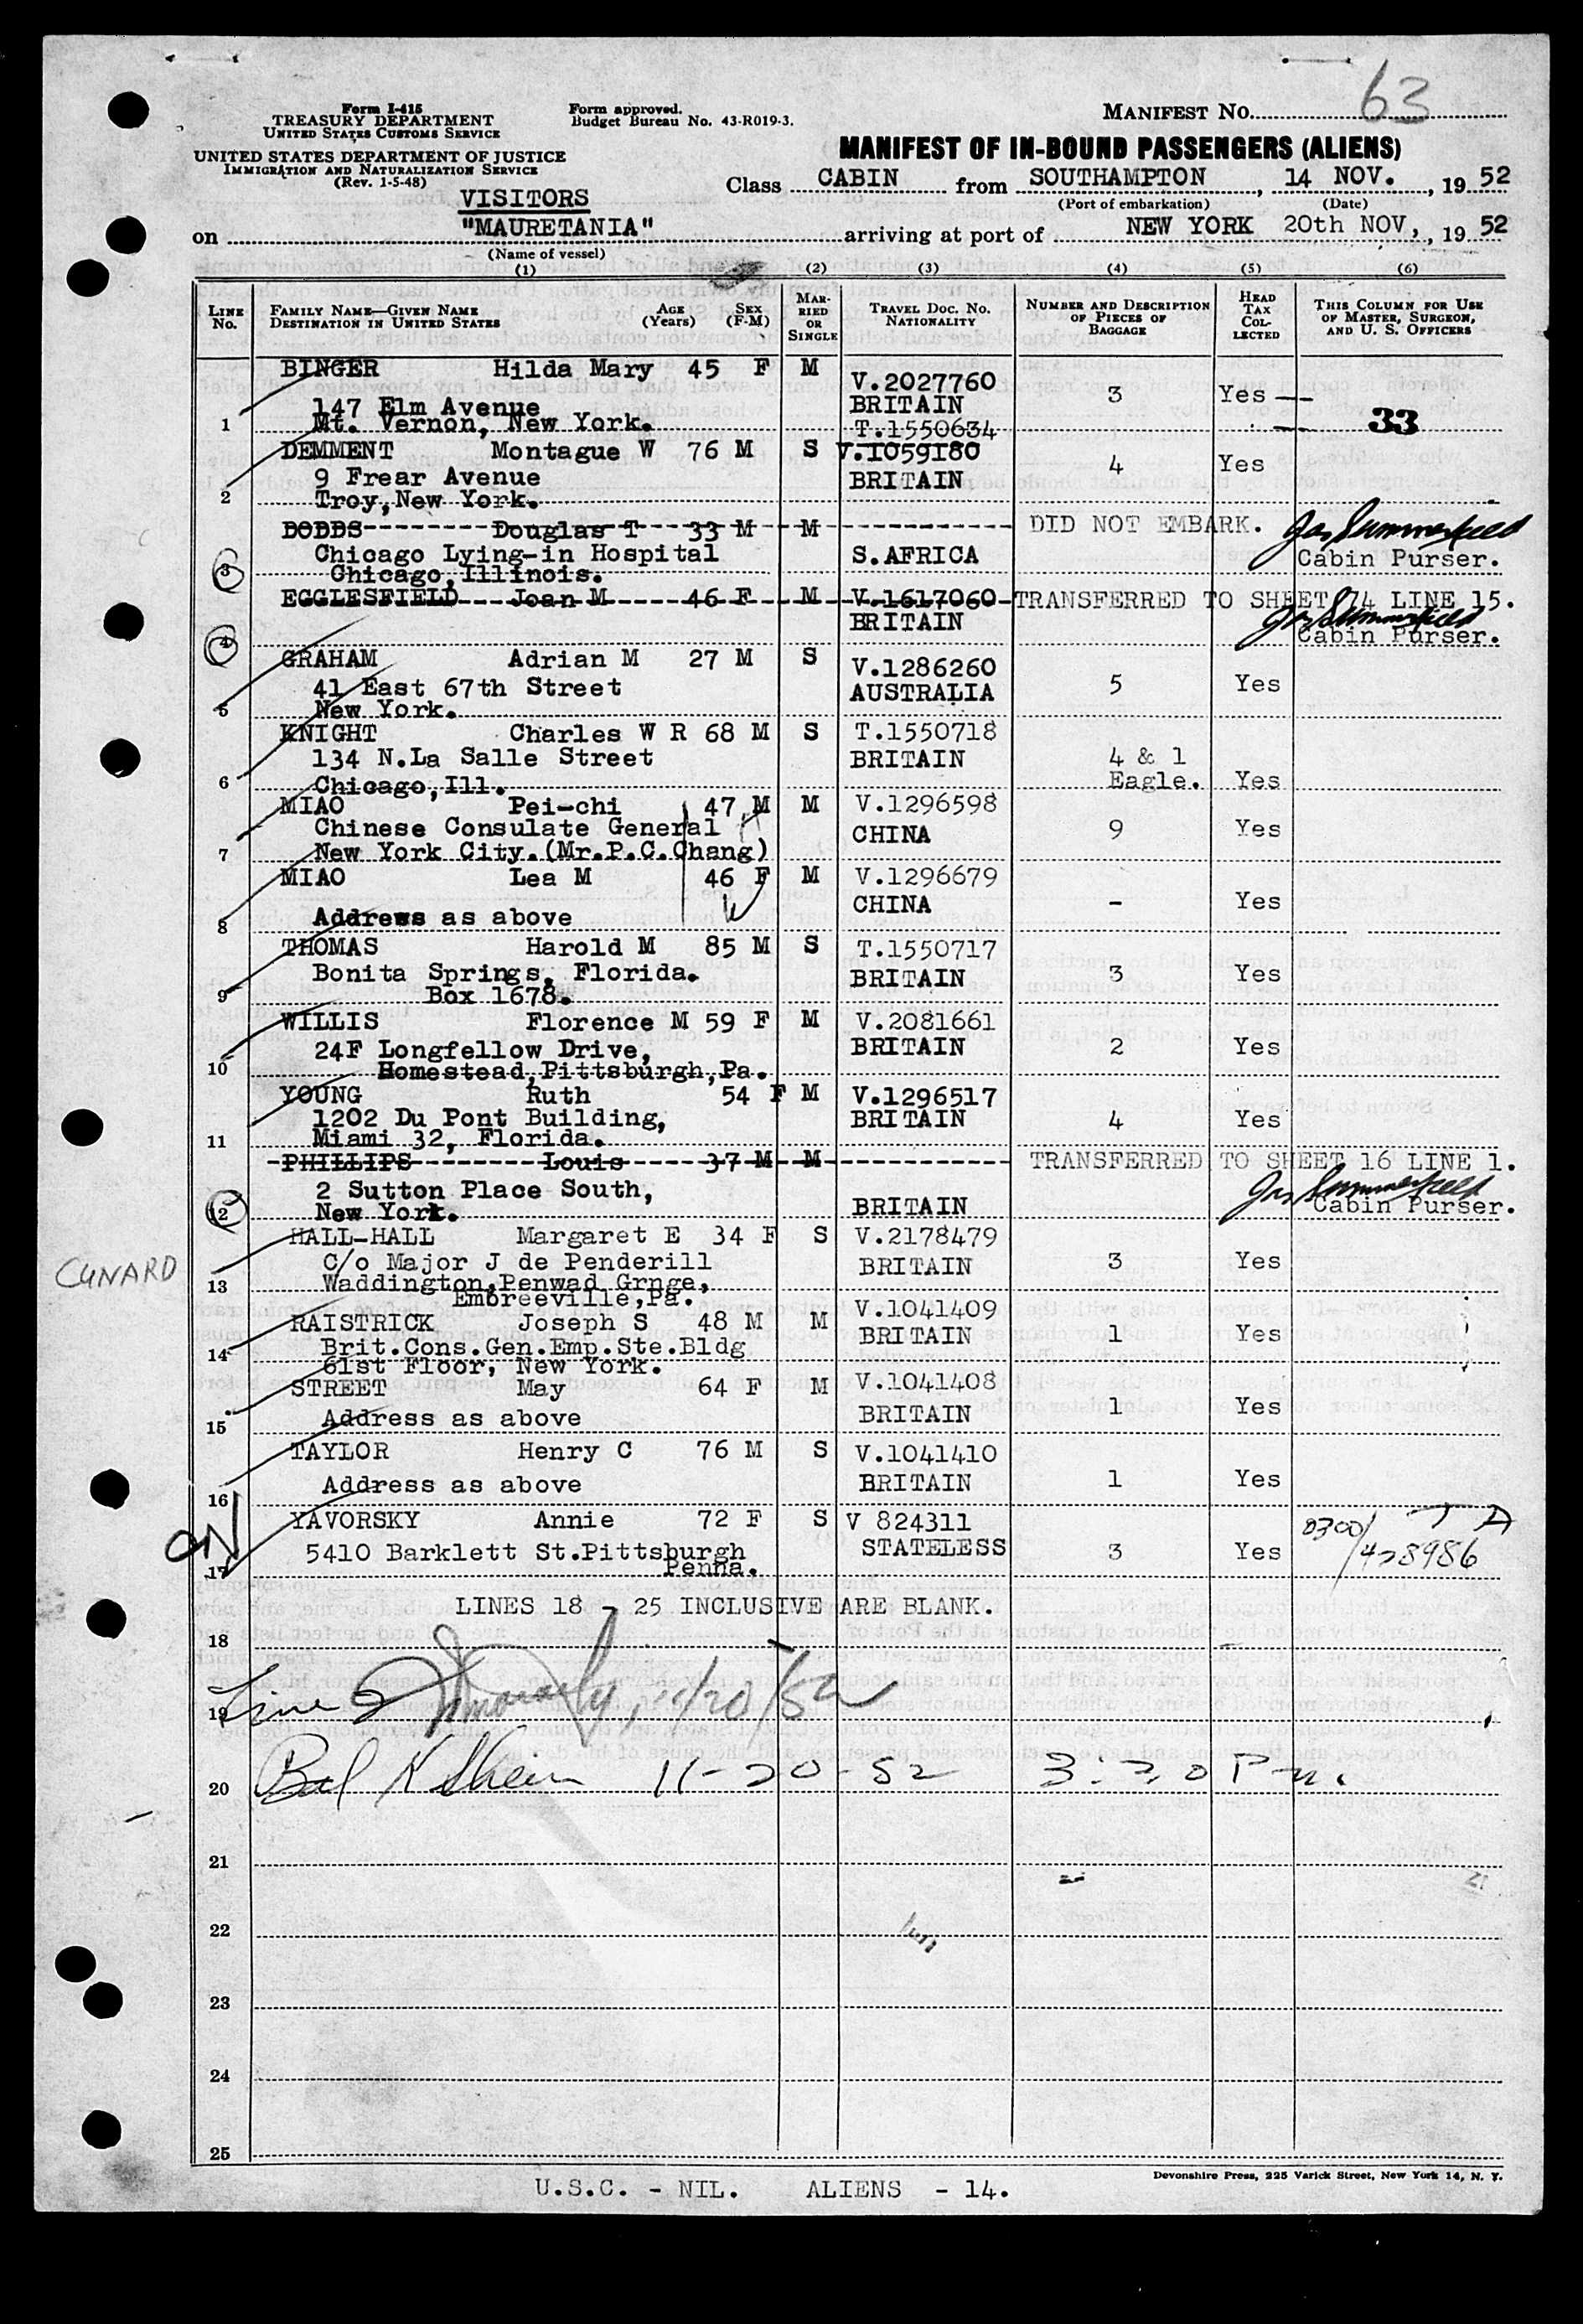 63
Form I-415
TREASURY DEPARTMENT
UNITED STATES CUSTOMS SERVICE
UNITED STATES DEPARTMENT OF JUSTICE
IMMIGRATION AND NATURALIZATION SERVICE
(Rev. 1-5-48)
Form approved.
Budget Bureau No. 43-R019-3.
MANIFEST NO.
MANIFEST OF IN-BOUND PASSENGERS (ALIENS)
Class CABIN from SOUTHAMPTON, 14 NOV., 1952
(Port of embarkation) (Date)
VISITORS
on "MAURETANIA" arriving at port of NEW YORK 20th NOV, , 1952
(Name of vessel)
(1) (2) (3) (4) (5) (6)
LINE NO. FAMILY NAME—GIVEN NAME DESTINATION IN UNITED STATES AGE (Years) SEX (F-M) MARRIED OR SINGLE TRAVEL DOC. NO. NATIONALITY NUMBER AND DESCRIPTION OF PIECES OF BAGGAGE HEAD TAX COLLECTED THIS COLUMN FOR USE OF MASTER, SURGEON, AND U. S. OFFICERS
BINGER Hilda Mary 45 F M V.2027760
147 Elm Avenue BRITAIN 3 Yes
1 Mt. Vernon, New York. T.1550634 33
DEMMENT Montague W 76 M S V.1059180
9 Frear Avenue BRITAIN 4 Yes
2 Troy,New York.
DODDS Douglas T 33 M M DID NOT EMBARK. Jas Summerfield
Chicago Lying-in Hospital S.AFRICA Cabin Purser.
3 Chicago,Illinois.
EGGLESFIELD Joan M 46 F M V-1617060 TRANSFERRED TO SHEET 74 LINE 15.
BRITAIN Jas Summerfield
4 Cabin Purser.
GRAHAM Adrian M 27 M S V.1286260
41 East 67th Street AUSTRALIA 5 Yes
5 New York.
KNIGHT Charles W R 68 M S T.1550718
134 N.La Salle Street BRITAIN 4 & 1
6 Chicago,Ill. Eagle. Yes
MIAO Pei-chi 47 M M V.1296598
Chinese Consulate General CHINA 9 Yes
7 New York City.(Mr.P.C.Chang)
MIAO Lea M 46 F M V.1296679
CHINA - Yes
8 Address as above
THOMAS Harold M 85 M S T.1550717
Bonita Springs, Florida. BRITAIN 3 Yes
9 Box 1678.
WILLIS Florence M 59 F M V.2081661
24F Longfellow Drive, BRITAIN 2 Yes
10 Homestead,Pittsburgh,Pa.
YOUNG Ruth 54 F M V.1296517
1202 Du Pont Building, BRITAIN 4 Yes
11 Miami 32, Florida.
PHILLIPS Louis 37 M M TRANSFERRED TO SHEET 16 LINE 1.
2 Sutton Place South, Jas Summerfield
12 New York. BRITAIN Cabin Purser.
HALL-HALL Margaret E 34 F S V.2178479
C/o Major J de Penderill BRITAIN 3 Yes
CUNARD
13 Waddington,Penwad Grnge,
Embreeville,Pa.
RAISTRICK Joseph S 48 M M V.1041409
Brit.Cons.Gen.Emp.Ste.Bldg BRITAIN 1 Yes
14 61st Floor, New York.
STREET May 64 F M V.1041408
15 Address as above BRITAIN 1 Yes
TAYLOR Henry C 76 M S V.1041410
16 Address as above BRITAIN 1 Yes
YAVORSKY Annie 72 F S V 824311
5410 Barklett St.Pittsburgh STATELESS 3 Yes 0300/428986
ON
17 Penna.
LINES 18 - 25 INCLUSIVE ARE BLANK.
18
19 Line 2 11/20/52
20 11-20-52 3:20 Pm.
21
22
23
24
25
Devonshire Press, 225 Varick Street, New York 14, N. Y.
U.S.C. - NIL. ALIENS - 14.